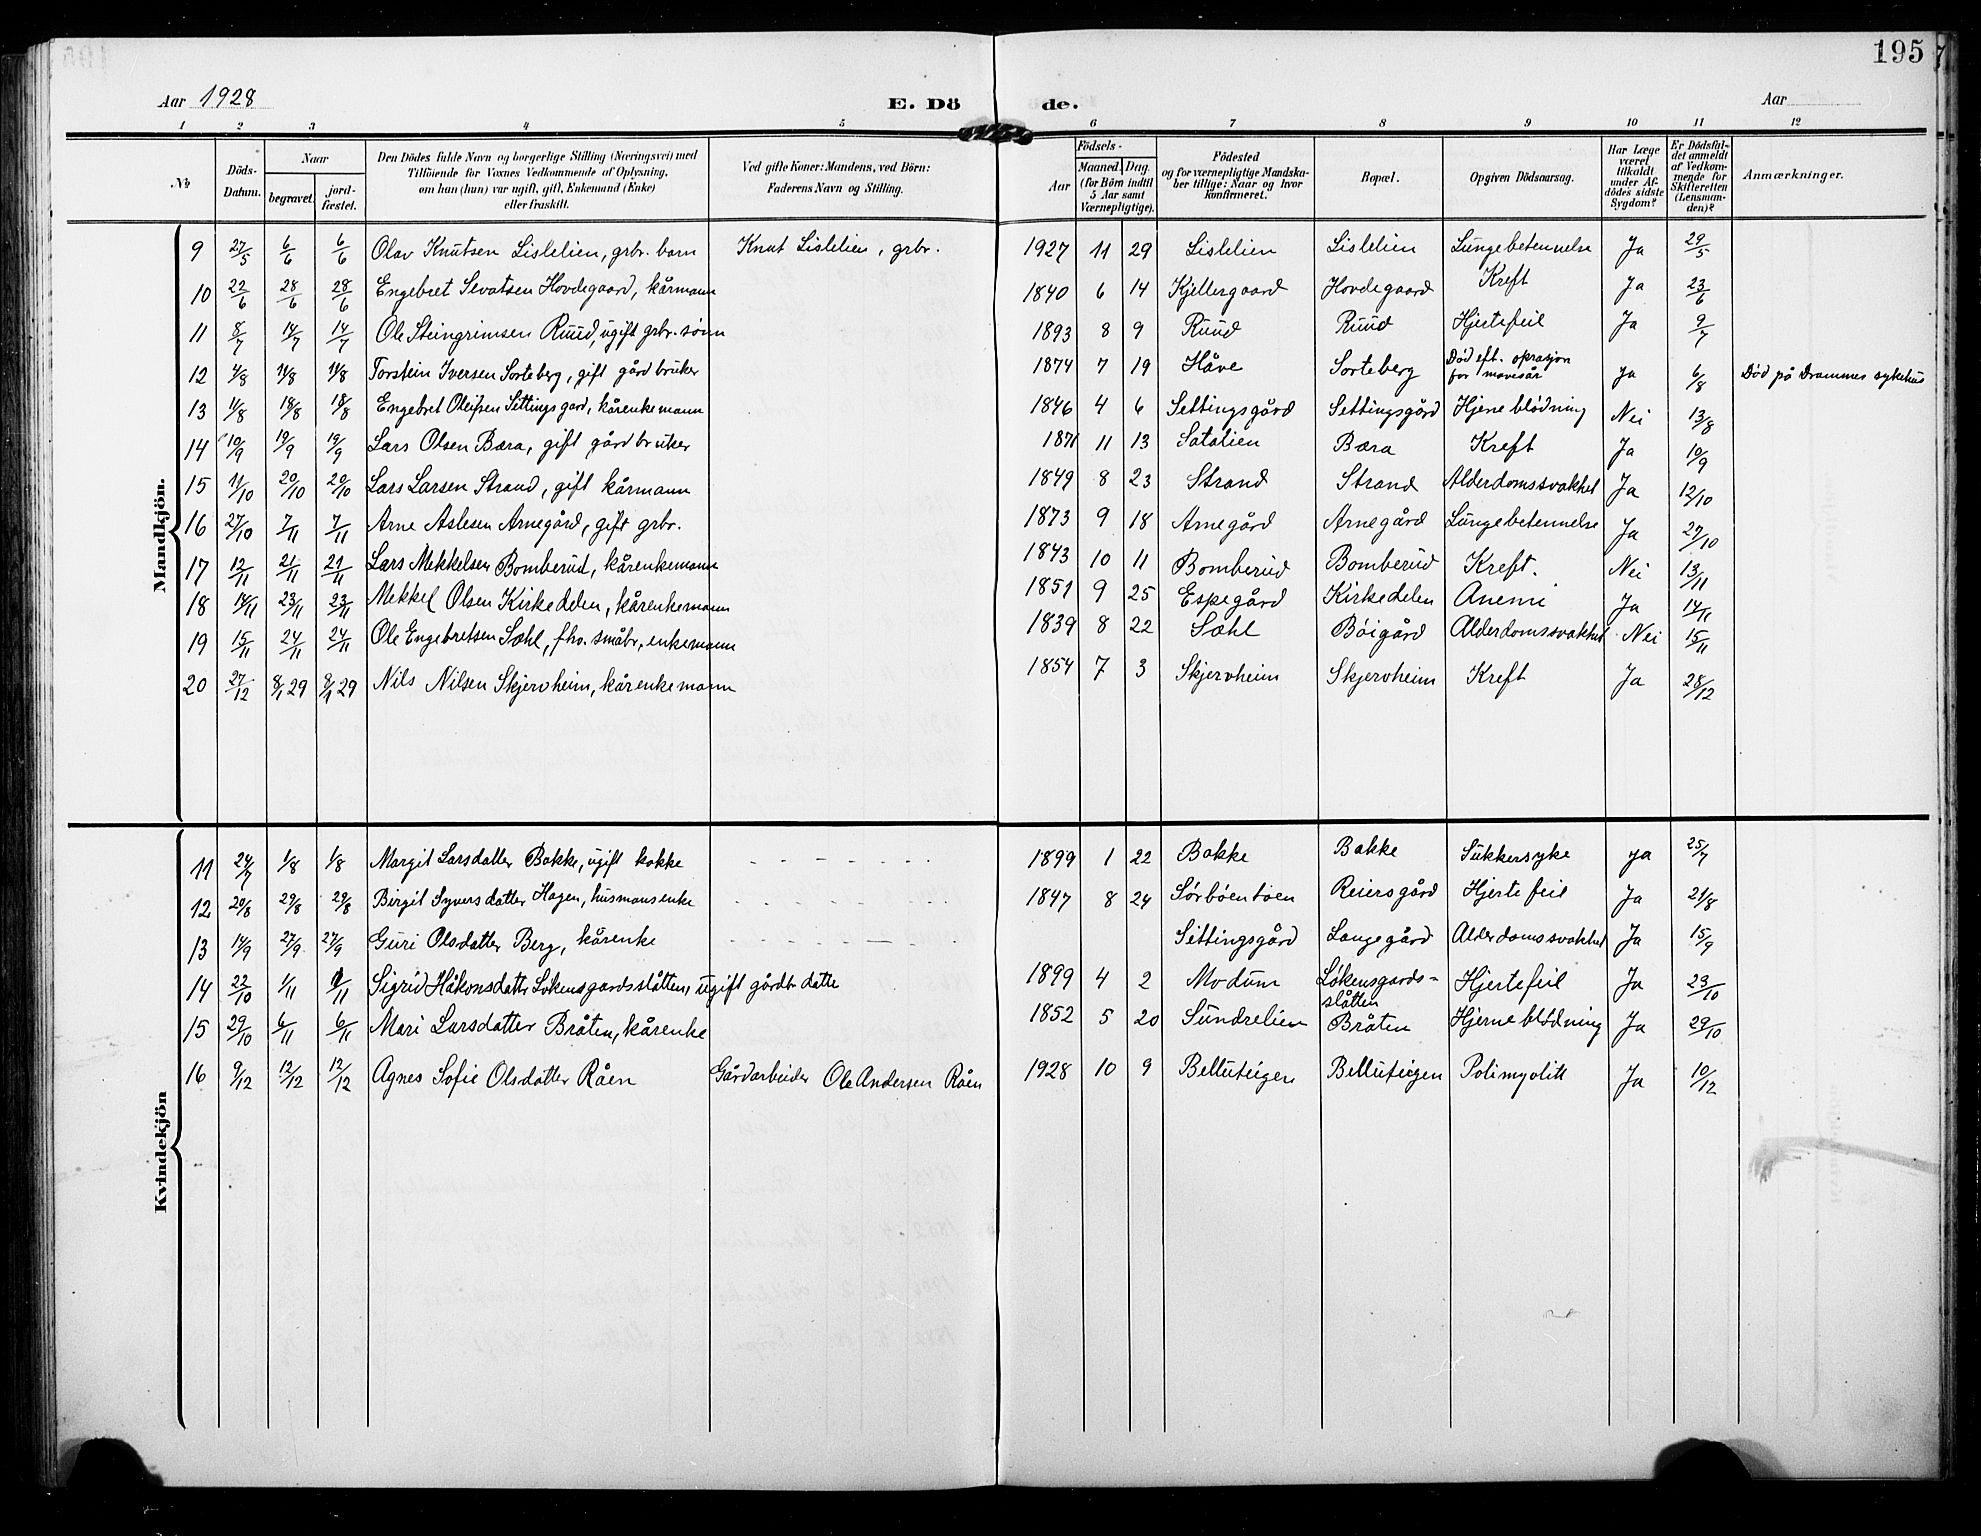 195
Aar 1928
E. Dö de.
Aar
1 2 3 4 5 6 7 8 9 10 11 12
No
Döds-Datum.
Naar
begravet.
jord-fæstet.
Den Dödes fulde Navn og borgerlige Stilling (Næringsvei) med Tilföiende för Voxnes Vedkommende af Oplysning, om han (hun) var ugift, gift, Enkemand (Enke) eller fraskilt.
Ved gifte Koner: Mandens, ved Börn: Faderens Navn og Stilling.
Födsels-
Aar
Maaned. Dag.
(for Börn indtil 5 Aar samt Værnepligtige).
Födested
og for værnepligtige Mandskaber tillige: Naar og hvor konfirmeret.
Bopæl.
Opgiven Dödsaarsag.
Har Læge været tilkaldt under Afdödes sidste Sygdom?
Er Dödsfaldet anmeldt af Vedkommende for Skifteretten (Lensmanden)?
Anmærkninger.
Mandkjön.
9 27/5 6/6 6/6 Olav Knutsen Lislelien, grbr. barn Knut Lislelien, grbr. 1927 11 29 Lislelien Lislelien Lungebetennelse Ja 29/5
10 22/6 28/6 28/6 Engebret Sevatsen Hovdegaard, kårmann 1840 6 14 Kjellergaard Hovdegaard Kreft Ja 23/6
11 8/7 14/7 14/7 Ole Steingrimsen Ruud, ugift grbr. sønn 1893 8 9 Ruud Ruud Hjertefeil Ja 9/7
12 4/8 11/8 11/8 Torstein Iversen Sorteberg, gift gårdbruker 1874 7 19 Håve Sorteberg Död eft. oprasjon for mavesår Ja 6/8 Död på Drammes sykehus
13 11/8 18/8 18/8 Engebret Oleifsen Settingsgard, kårenkemann 1846 4 6 Settingsgård Settingsgård Hjerneblödning Nei 13/8
14 10/9 19/9 19/9 Lars Olsen Bæra, gift gårdbruker 1871 11 13 Satalien Bæra Kreft Ja 10/9
15 11/10 20/10 20/10 Lars Larsen Strand, gift kårmann 1849 8 23 Strand Strand Alderdomssvakhet Ja 12/10
16 27/10 7/11 7/11 Arne Aslesen Arnegård, gift grbr. 1873 9 18 Arnegård Arnegård Lungebetennelse Ja 27/10
17 12/11 21/11 21/11 Lars Mekkelsen Bomberud, kårenkemann 1843 10 11 Bomberud Bomberud Kreft. Nei 13/11
18 14/11 23/11 23/11 Mekkel Olsen Kirkedelen, kårenkemann 1851 9 25 Espegård Kirkedelen Anemi Ja 14/11
19 15/11 24/11 24/11 Ole Engebretsen Sæhl, fhv. småbr, enkemann 1839 8 22 Sæhl Böigård Alderdomssvakhet Nei 15/11
20 27/12 8/1 29 8/1 29 Nils Nilsen Skjervheim, kårenkemann 1854 7 3 Skjervheim Skjervheim Kreft Ja 28/12
Kvindekjön
11 24/7 1/8 1/8 Margit Larsdatter Bakke, ugift kokke 1899 1 22 Bakke Bakke Sukkersyke ja 25/7
12 20/8 29/8 29/8 Birgit Syversdatter Hagen, husmansenke 1847 8 24 Sørbøentoen Reiersgård Hjertefeil Ja 21/8
13 14/9 27/9 27/9 Guri Olsdatter Berg, kårenke Settingsgård Langegård Alderdomssvakhet Ja 15/9
14 22/10 1/11 1/11 Sigrid Håkonsdatter Lökensgardsslåtten, ugift gårdbr datte 1899 4 2 Modum Lökensgards-slåtten Hjertefeil Ja 23/10
15 29/10 6/11 6/11 Mari Larsdatter Bråten, kårenke 1852 5 20 Sundrelien Bråten Hjerneblödning Ja 29/10
16 9/12 12/12 12/12 Agnes Sofie Olsdatter Råen Gårdarbeider Ole Andersen Råen 1928 10 9 Belluteigen Belluteigen Polimyolitt Ja 10/12